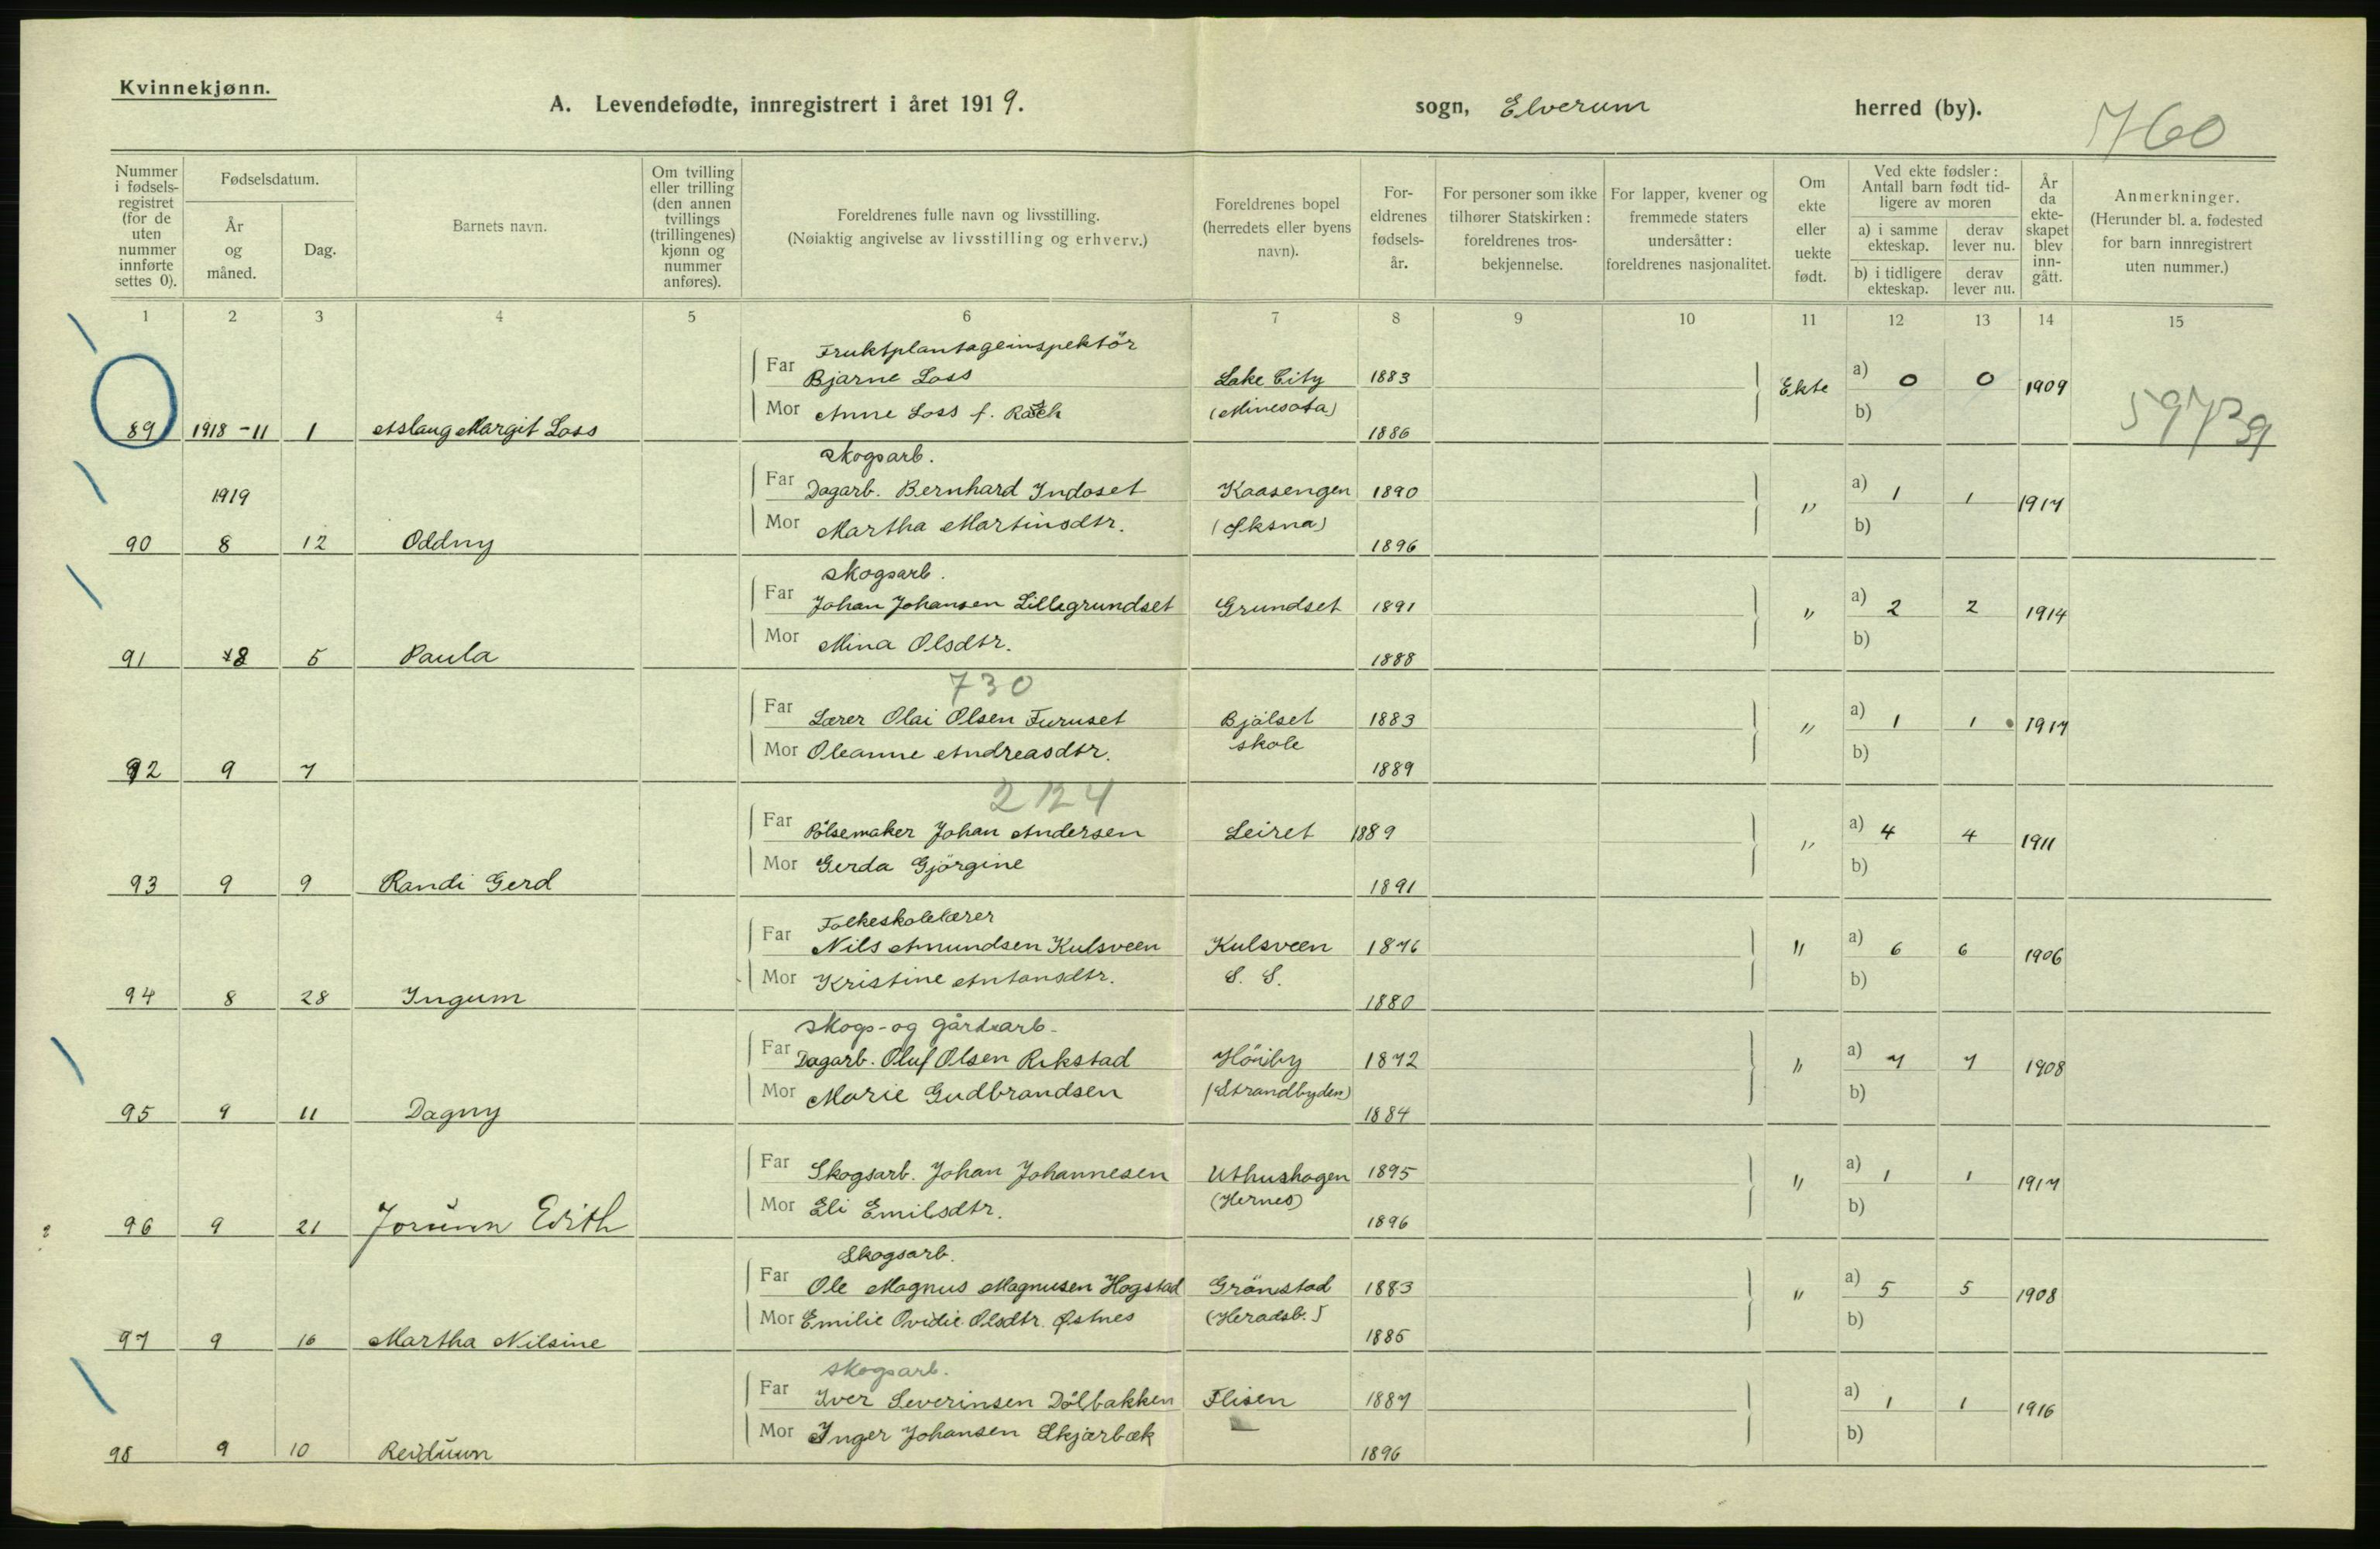 Kvinnekjønn.
A. Levendefødte, innregistrert i året 1919. sogn, Elverum herred (by).
760
Nummer i fødselsregistret (for de uten nummer innførte settes 0).
Fødselsdatum.
År og måned.
Dag.
Barnets navn.
Om tvilling eller trilling (den annen tvillings (trillingenes) kjønn og nummer anføres).
Foreldrenes fulle navn og livsstilling.
(Nøiaktig angivelse av livsstilling og erhverv.)
Foreldrenes bopel (herredets eller byens navn).
Foreldrenes fødselsår.
For personer som ikke tilhører Statskirken: foreldrenes trosbekjennelse.
For lapper, kvener og fremmede staters undersåtter: foreldrenes nasjonalitet.
Om ekte eller uekte født.
Ved ekte fødsler: Antall barn født tidligere av moren
a) i samme ekteskap. derav lever nu.
b) i tidligere ekteskap. derav lever nu.
År da ekteskapet blev inngått.
Anmerkninger.
(Herunder bl. a. fødested for barn innregistrert uten nummer.)
1 2 3 4 5 6 7 8 9 10 11 12 13 14 15
Fruktplantageinspektör
Far Bjarne Loss Lake City 1883 Ekte a) 0 0 1909
Mor Anne Loss f. (Minesota) b)
89 1918-11 1 Aslaug Margit Loss 1886
Skogsarb.
Far Dagarb. Bernhard Indoset Kaasengen 1890 " a) 1 1 1917
1919
Mor Martha Martinsdtr. (Øksna) b)
90 8 12 Oddny 1896
Skogsarb.
Far Johan Johansen Lillegrundset Grundset 1891 " a) 2 2 1914
Mor Mina Olsdtr. b)
91 8 5 Paula 1888
730
Far Lærer Olai Olsen Furuset Bjölset 1883 " a) 1 1 1917
Mor Oleanne Andreasdtr. skole b)
92 9 7 1889
2124
Far Pölsemaker Johan Andersen Leiret 1889 " a) 4 4 1911
Mor Gerda Gjörgine b)
93 9 9 Randi Gerd 1891
Folkeskolelærer
Far Nils Amundsen Kulsveen Kulsveen 1876 " a) 6 6 1906
Mor Kristine Antonsdtr. S. S. b)
94 8 28 Ingum 1880
Skogs- og gårdsarb.
Far Dagarb. Oluf Olsen Rikstad Höiby 1872 " a) 7 7 1908
Mor Marie Gudbrandsen (Strandbyden) b)
95 9 11 Dagny 1884
Far Skogsarb. Johan Johannesen Uthushagen 1895 " a) 1 1 1917
Mor Eli Emilsdtr. (Hernes) b)
96 9 21 Jorunn Edith 1896
Skogsarb.
Far Ole Magnus Magnusen Hogstad Grönstad 1883 " a) 5 5 1908
Mor Emilie Ovidie Olsdtr. Østnes (Heradsb.) b)
97 9 16 Martha Nilsine 1885
skogsarb.
Far Iver Severinsen Dölbakken Flisen 1887 a) 1 1 1916
Mor Inger Johansen Skjærbæk b)
98 9 10 Reidunn 1896